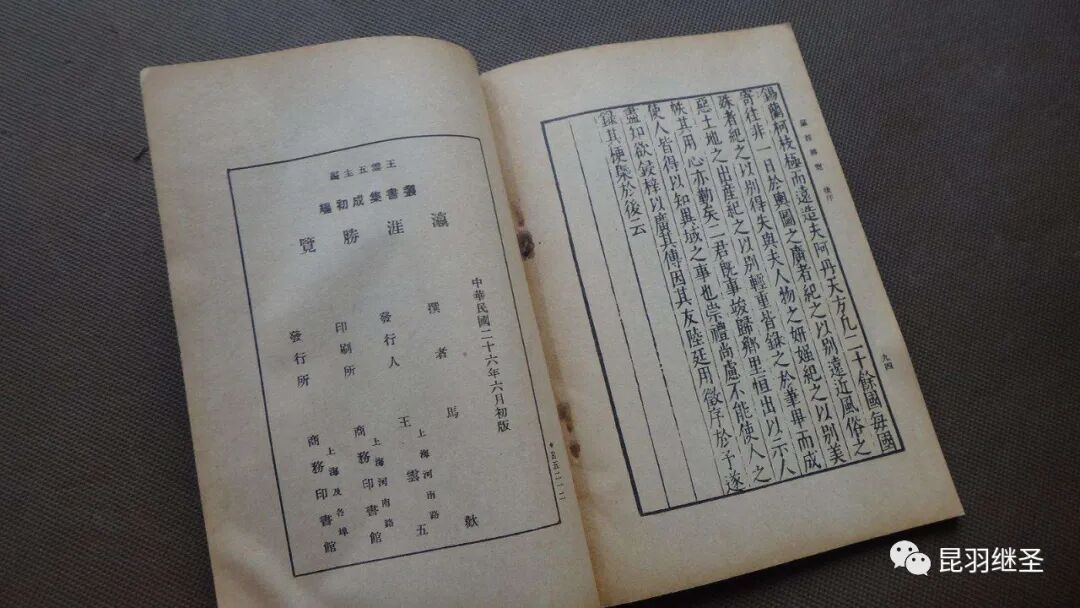 瀛涯勝覽 後序
九四
錫蘭柯枝極而遠造夫阿丹天方凡二十餘國每國
寄往非一日於輿圖之廣者紀之以別遠近風俗之
殊者紀之以別得失與夫人物之妍媸紀之以別美
惡土地之出產紀之以別輕重皆錄之於筆畢而成
帙其用心亦勤矣二君既事竣歸鄉里恒出以示人
使人皆得以知異域之事也崇禮尚慮不能使人之
盡知欲鋟梓以廣其傳因其友陸廷用徵序於予遂
錄其梗槩於後云
王雲五主編
叢書集成初編
瀛涯勝覽
中華民國二十六年六月初版
撰者 馬歡
發行人 王雲五
上海河南路
印刷所 商務印書館
上海河南路
發行所 商務印書館
上海及各埠
昆羽继圣